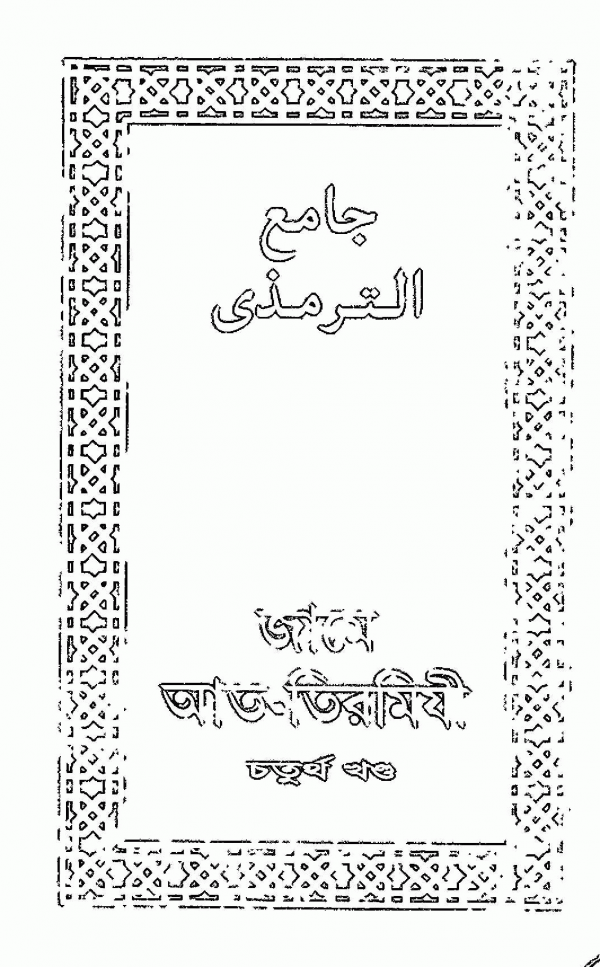 جامع
الترمذى
জামে
আত-তিরমিযী
চতুর্থ খণ্ড